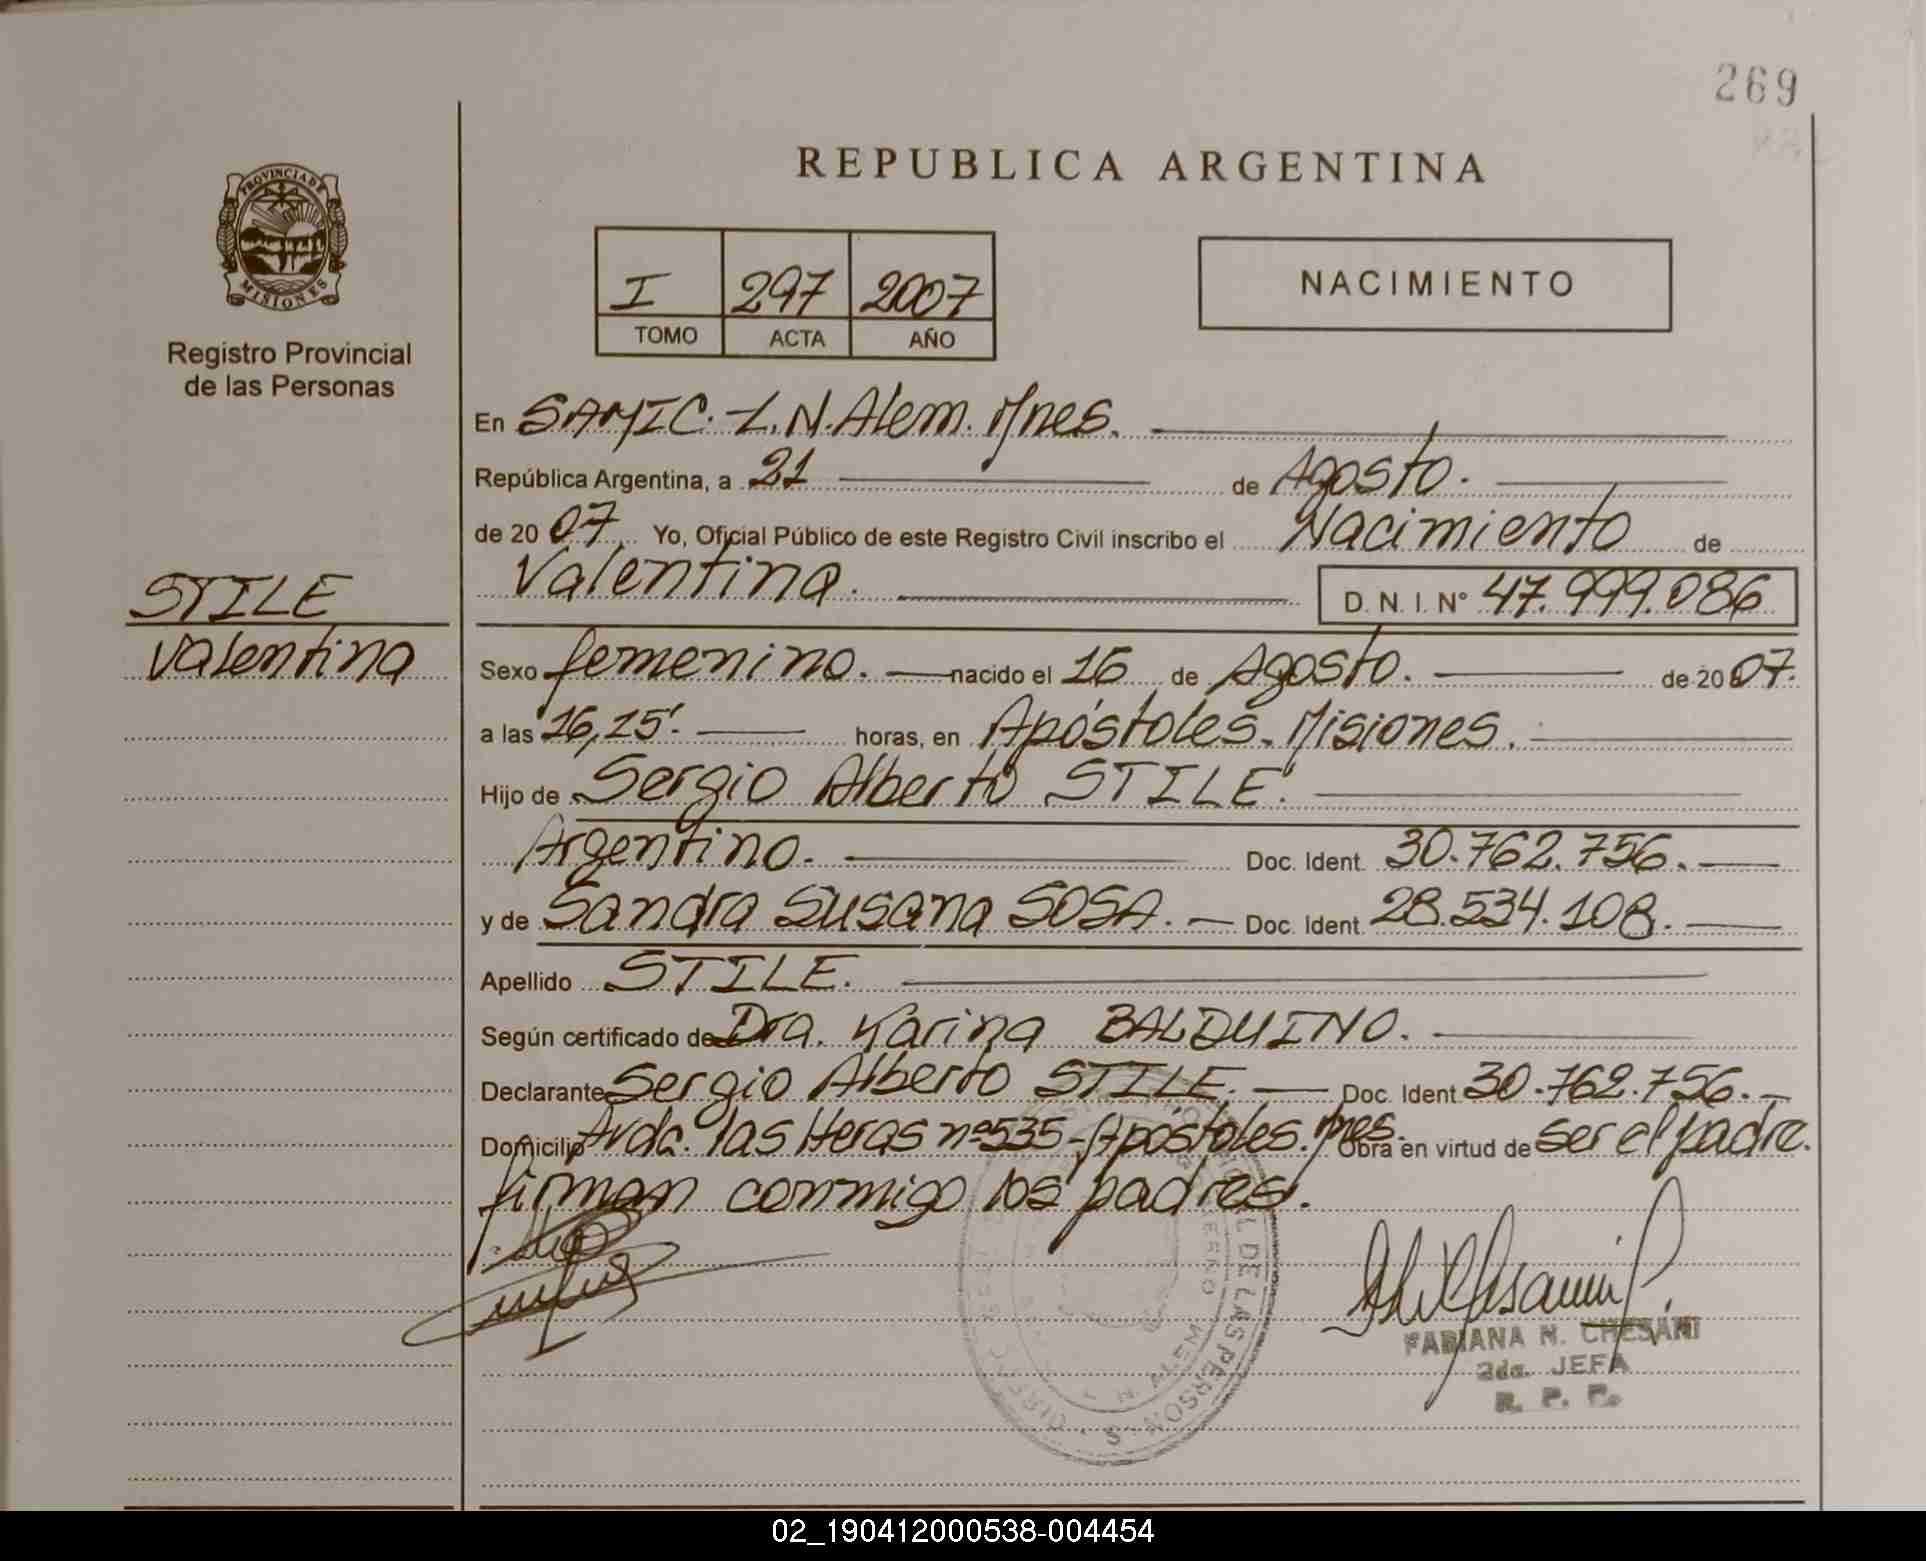 269
REPUBLICA ARGENTINA
PROVINCIA DE
MISIONES
Registro Provincial
de las Personas
I 297 2007
TOMO ACTA AÑO
NACIMIENTO
En SAMIC. L.N.Alem. Mnes.
República Argentina, a 21 de Agosto.
de 20 07 Yo, Oficial Público de este Registro Civil inscribo el Nacimiento de
Valentina. D. N. I. N° 47.999.086
STILE
Valentina
Sexo femenino. nacido el 16 de Agosto. de 20 07.
a las 16,15'. horas, en Apóstoles. Misiones.
Hijo de Sergio Alberto STILE.
Argentino. Doc. Ident. 30.762.756.
y de Sandra Susana SOSA. Doc. Ident. 28.534.108.
Apellido STILE.
Según certificado de Dra. Karina BALDUINO.
Declarante Sergio Alberto STILE. Doc. Ident 30.762.756.
Domicilio Avda. las Heras nº535. Apóstoles. Mnes. Obra en virtud de ser el padre.
firman conmigo los padres.
FABIANA N. CHESANI
2da. JEFA
R. P. P.
DE LAS PERSONAS
N. ALEM
02_190412000538-004454